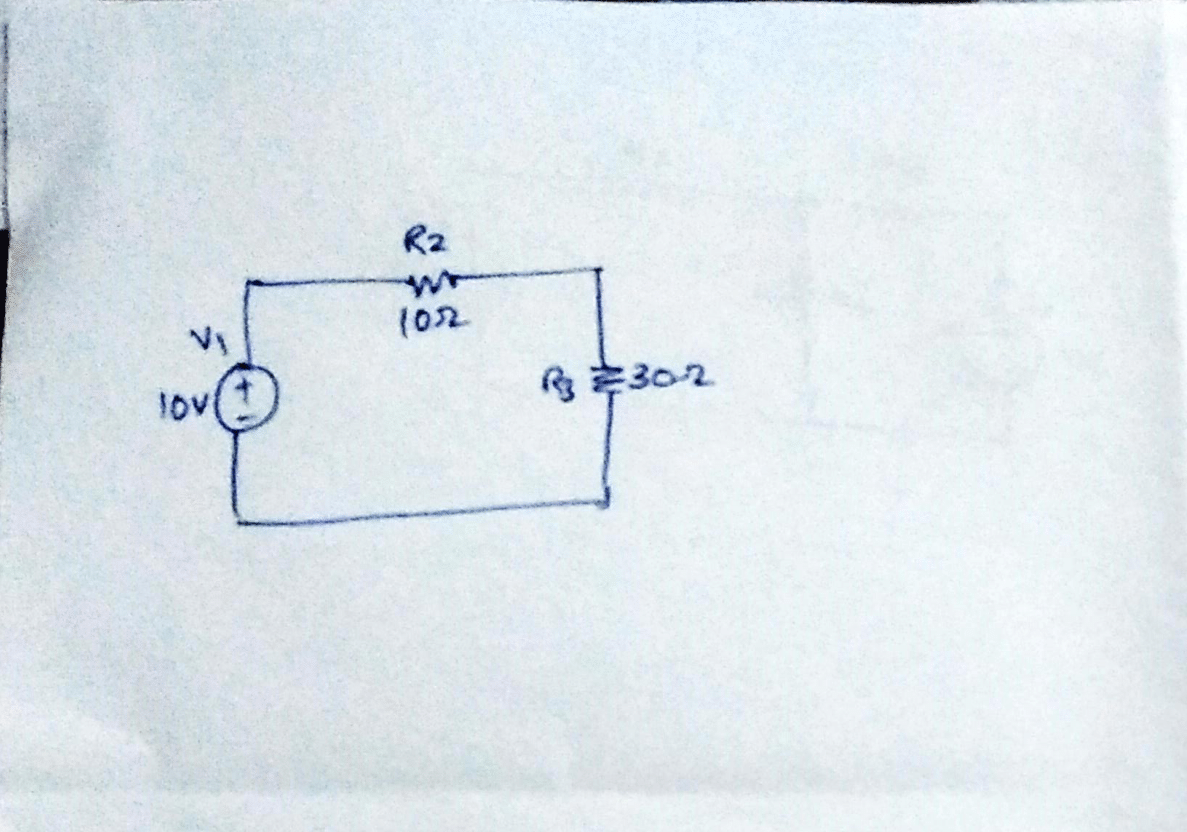 R2
10Ω
V1
10V
+
-
R3
30Ω